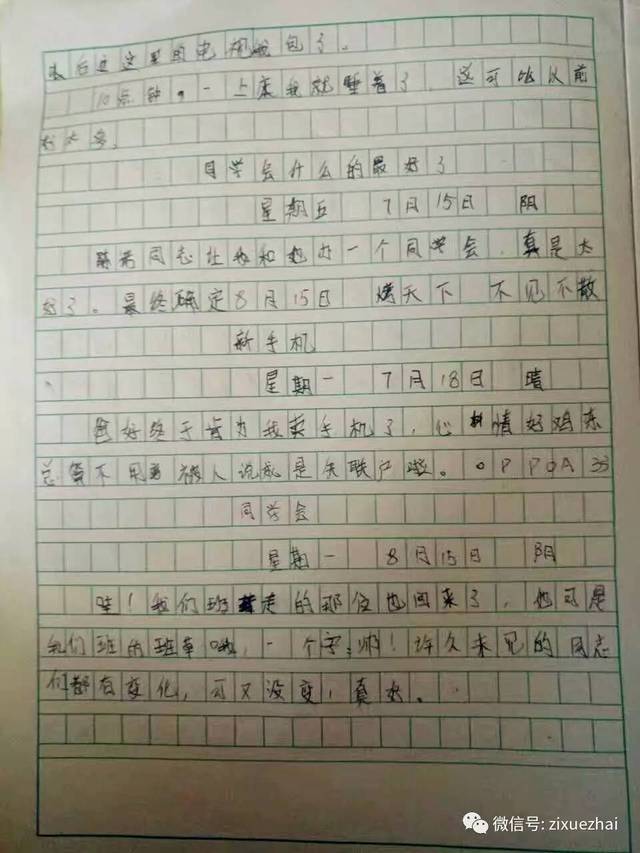 后这里的电视我包了。
10点钟,一上床我就睡着了,这可比以前
好太多
同学会什么的最好了
星期五 7月15日 阴
同志让我和她办一个同学会,真是太
好了。最终确定8月15日 烤天下 不见不散
新手机
星期一 7月18日 晴
爸妈终于肯为我买手机了,心情好鸡冻
总算不用再被人说成是失联户啦。OPPOA33
同学会
星期一 8月15日 阴
哇!我们班走的那位也回来了,他可是
我们班的班草哦,一个字:帅!许久未见的同志
们都有变化,可又没变,真好。
微信号: zixuezhai